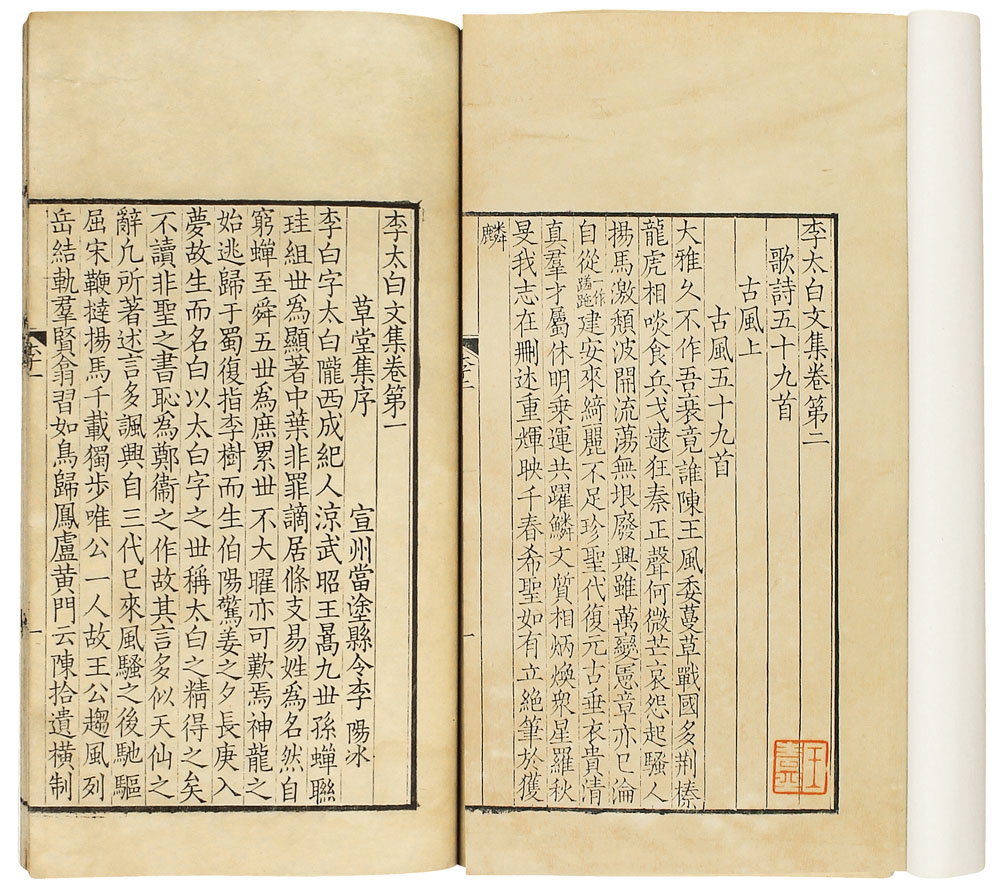 李太白文集卷第二
歌詩五十九首
古風上
古風五十九首
大雅久不作吾衰竟誰陳王風委蔓草戰國多荆榛
龍虎相啖食兵戈逮狂秦正聲何微芒哀怨起騷人
揚馬激頽波開流蕩無垠廢興雖萬變憲章亦巳淪
自從一作蹉跎建安來綺麗不足珍聖代復元古垂衣貴清
真羣才屬休明乗運共躍鱗文質相炳煥衆星羅秋
旻我志在刪述重輝映千春希聖如有立絕筆於獲
麟
李太白文集卷第一
草堂集序 宣州當塗縣令李陽冰
李白字太白隴西成紀人涼武昭王暠九丗孫蟬聯
珪組丗為顯著中葉非罪謫居條支易姓為名然自
窮蟬至舜五丗為庶累丗不大曜亦可歎焉神龍之
始逃歸于蜀復指李樹而生伯陽驚姜之夕長庚入
夢故生而名白以太白字之丗稱太白之精得之矣
不讀非聖之書恥為鄭衞之作故其言多似天仙之
辭凢所著述言多諷興自三代巳來風騷之後馳驅
屈宋鞭撻揚馬千載獨步唯公一人故王公趨風列
岳結軌羣賢翕習如鳥歸鳳盧黄門云陳拾遺橫制